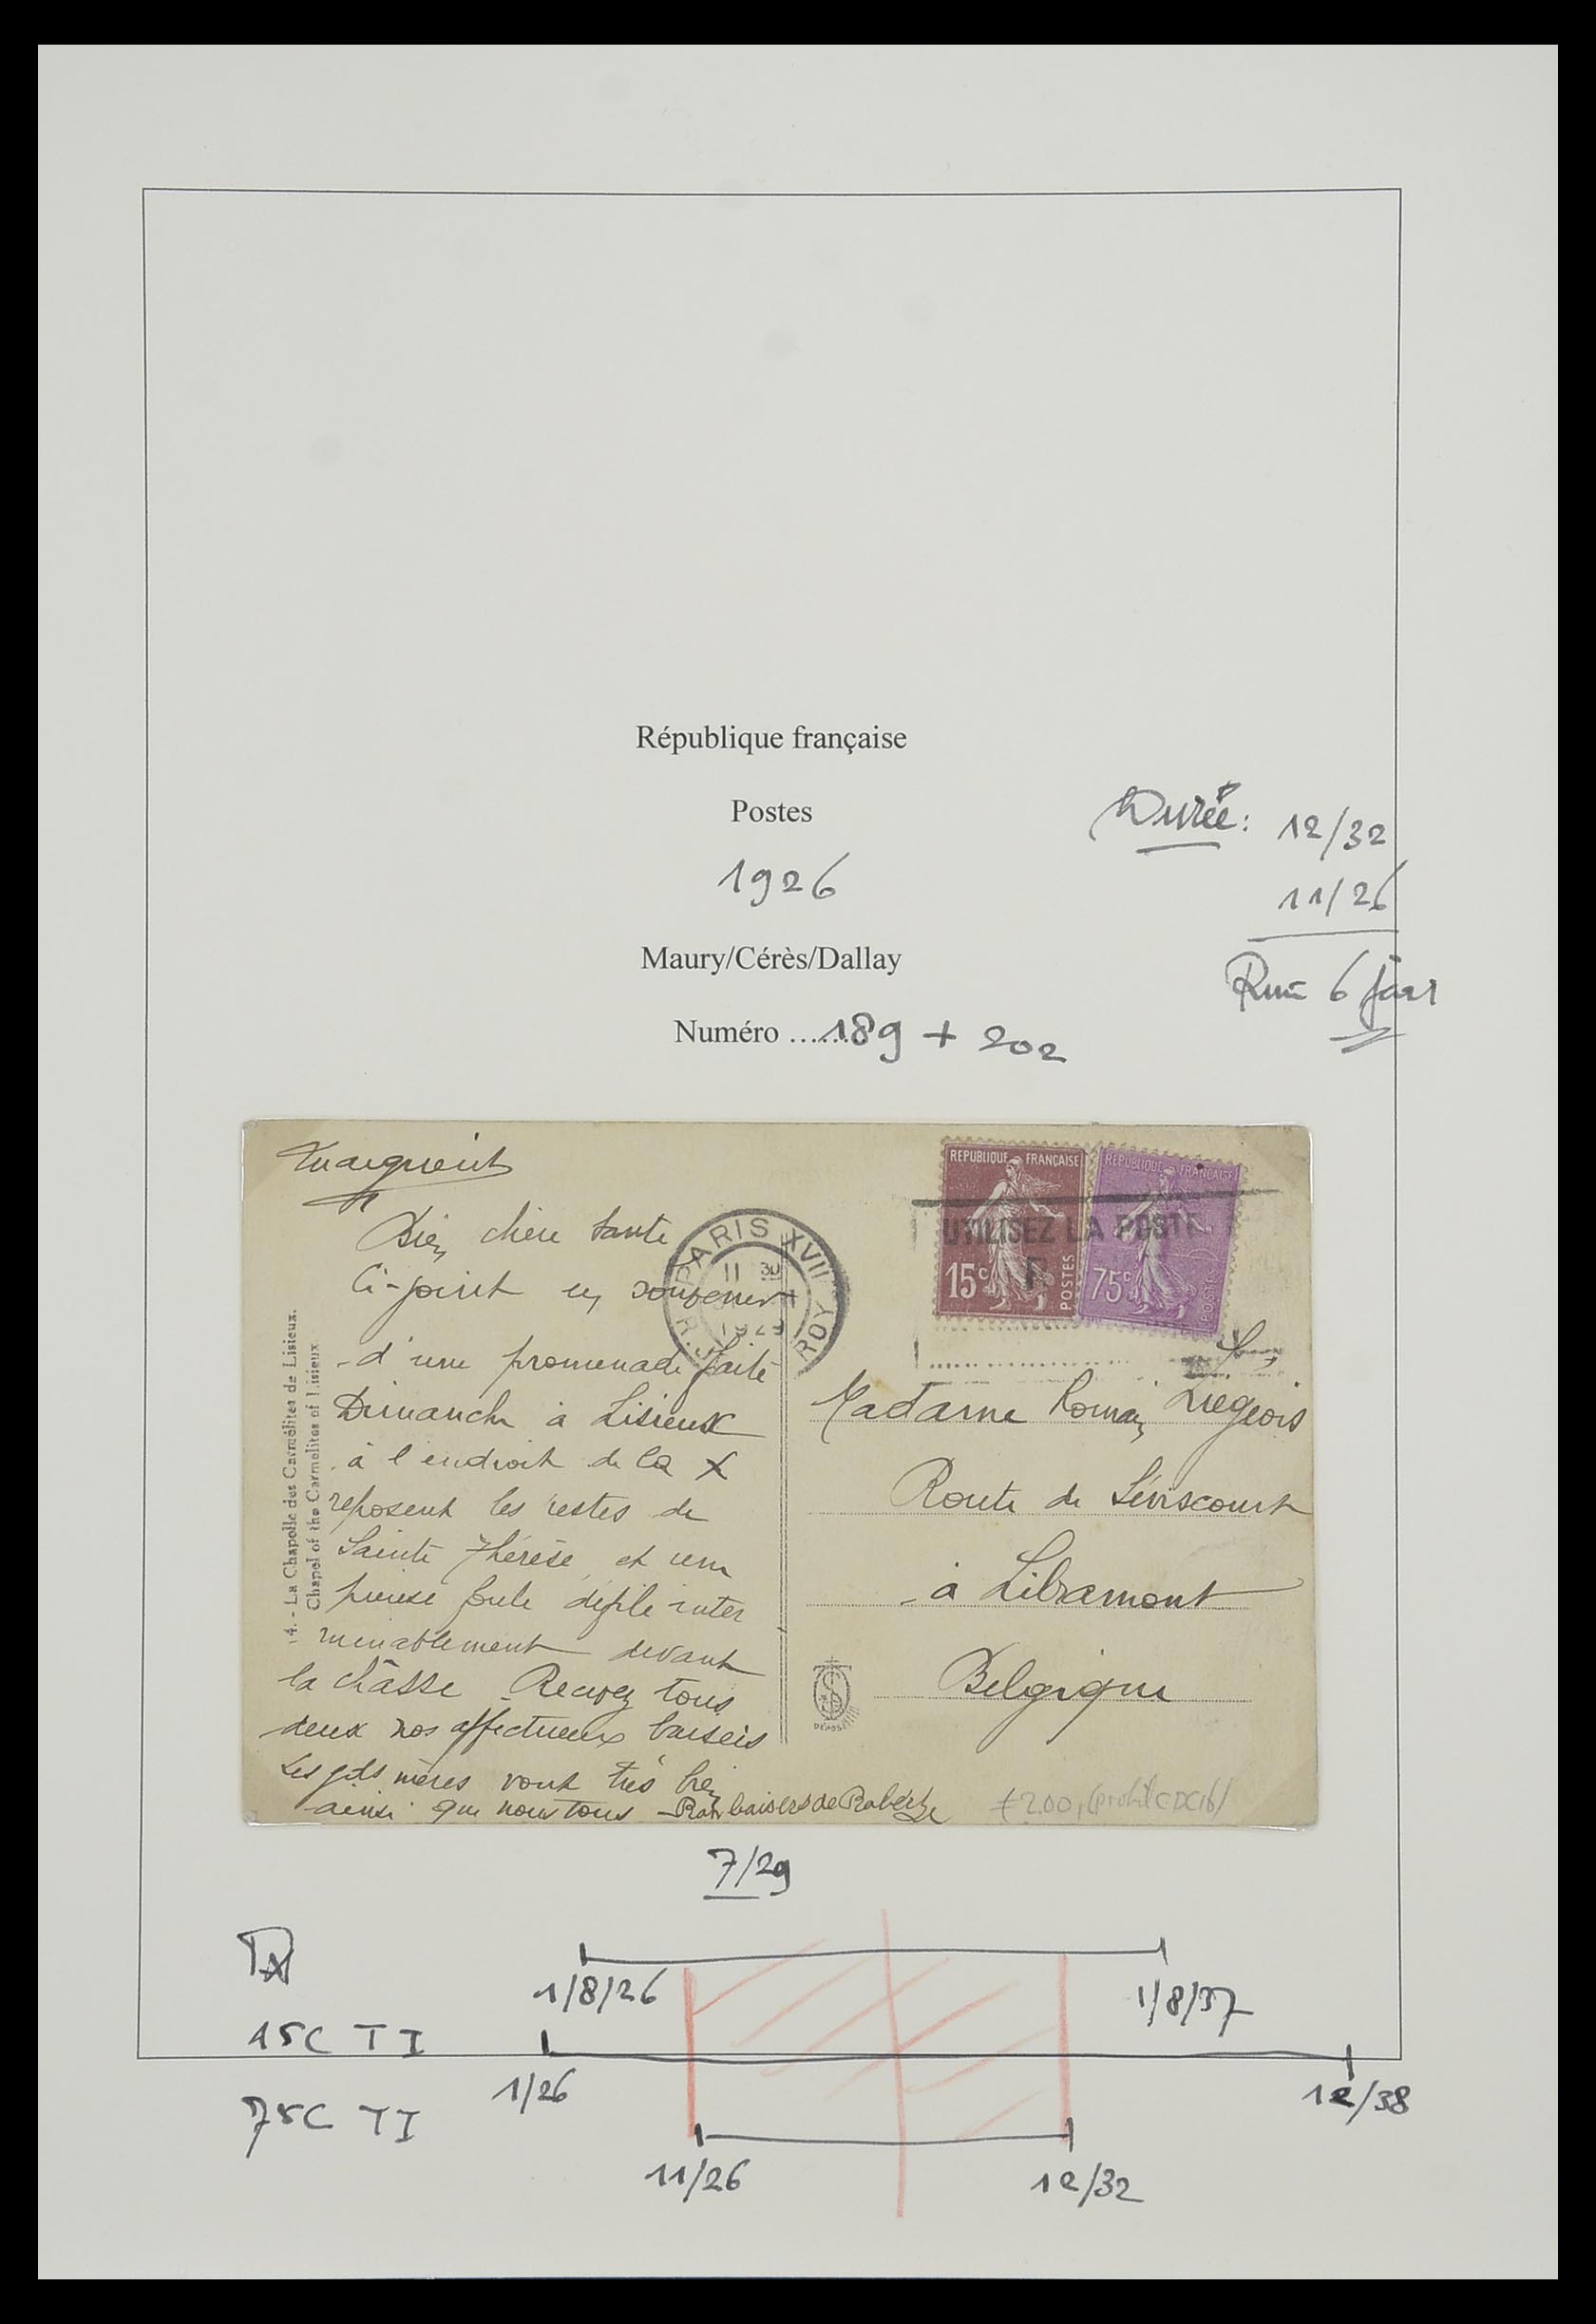 République française
Postes
1926
Maury/Cérès/Dallay
Numéro ......189 + 202
Durée: 12/32
11/26
6
Bien chère tante
Ci-joint en souvenir
d'une promenade faite
Dimanche à Lisieux
à l'endroit de la X
reposent les restes de
Sainte Thérèse et une
pieuse foule défile inter
minablement devant
la châsse Recevez tous
deux nos affectueux baisers
Les ptes mères vont très bien
ainsi que nous tous - baisers de
14. - La Chapelle des Carmélites de Lisieux.
Chapel of the Carmelites of Lisieux
PARIS XVII
11 30
1929
R. J ROY
REPUBLIQUE FRANÇAISE
15c POSTES
REPUBLIQUE FRANÇAISE
75c POSTES
UTILISEZ LA POSTE
Madame Romain Liégeois
Route de
à Libramont
Belgique
DEPOSÉ
7/29
1/8/26
1/8/37
15C TI
1/26
12/38
75C TI
11/26
12/32